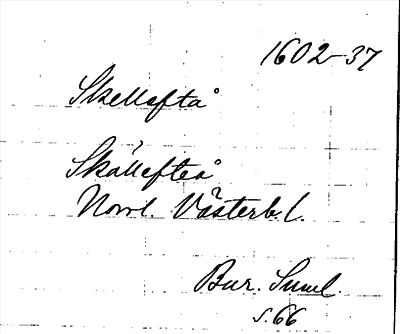 1602-37
Skellefta°
Skällefteå
Norrl. Västerb. l.
Bur. Suml.
s. 66